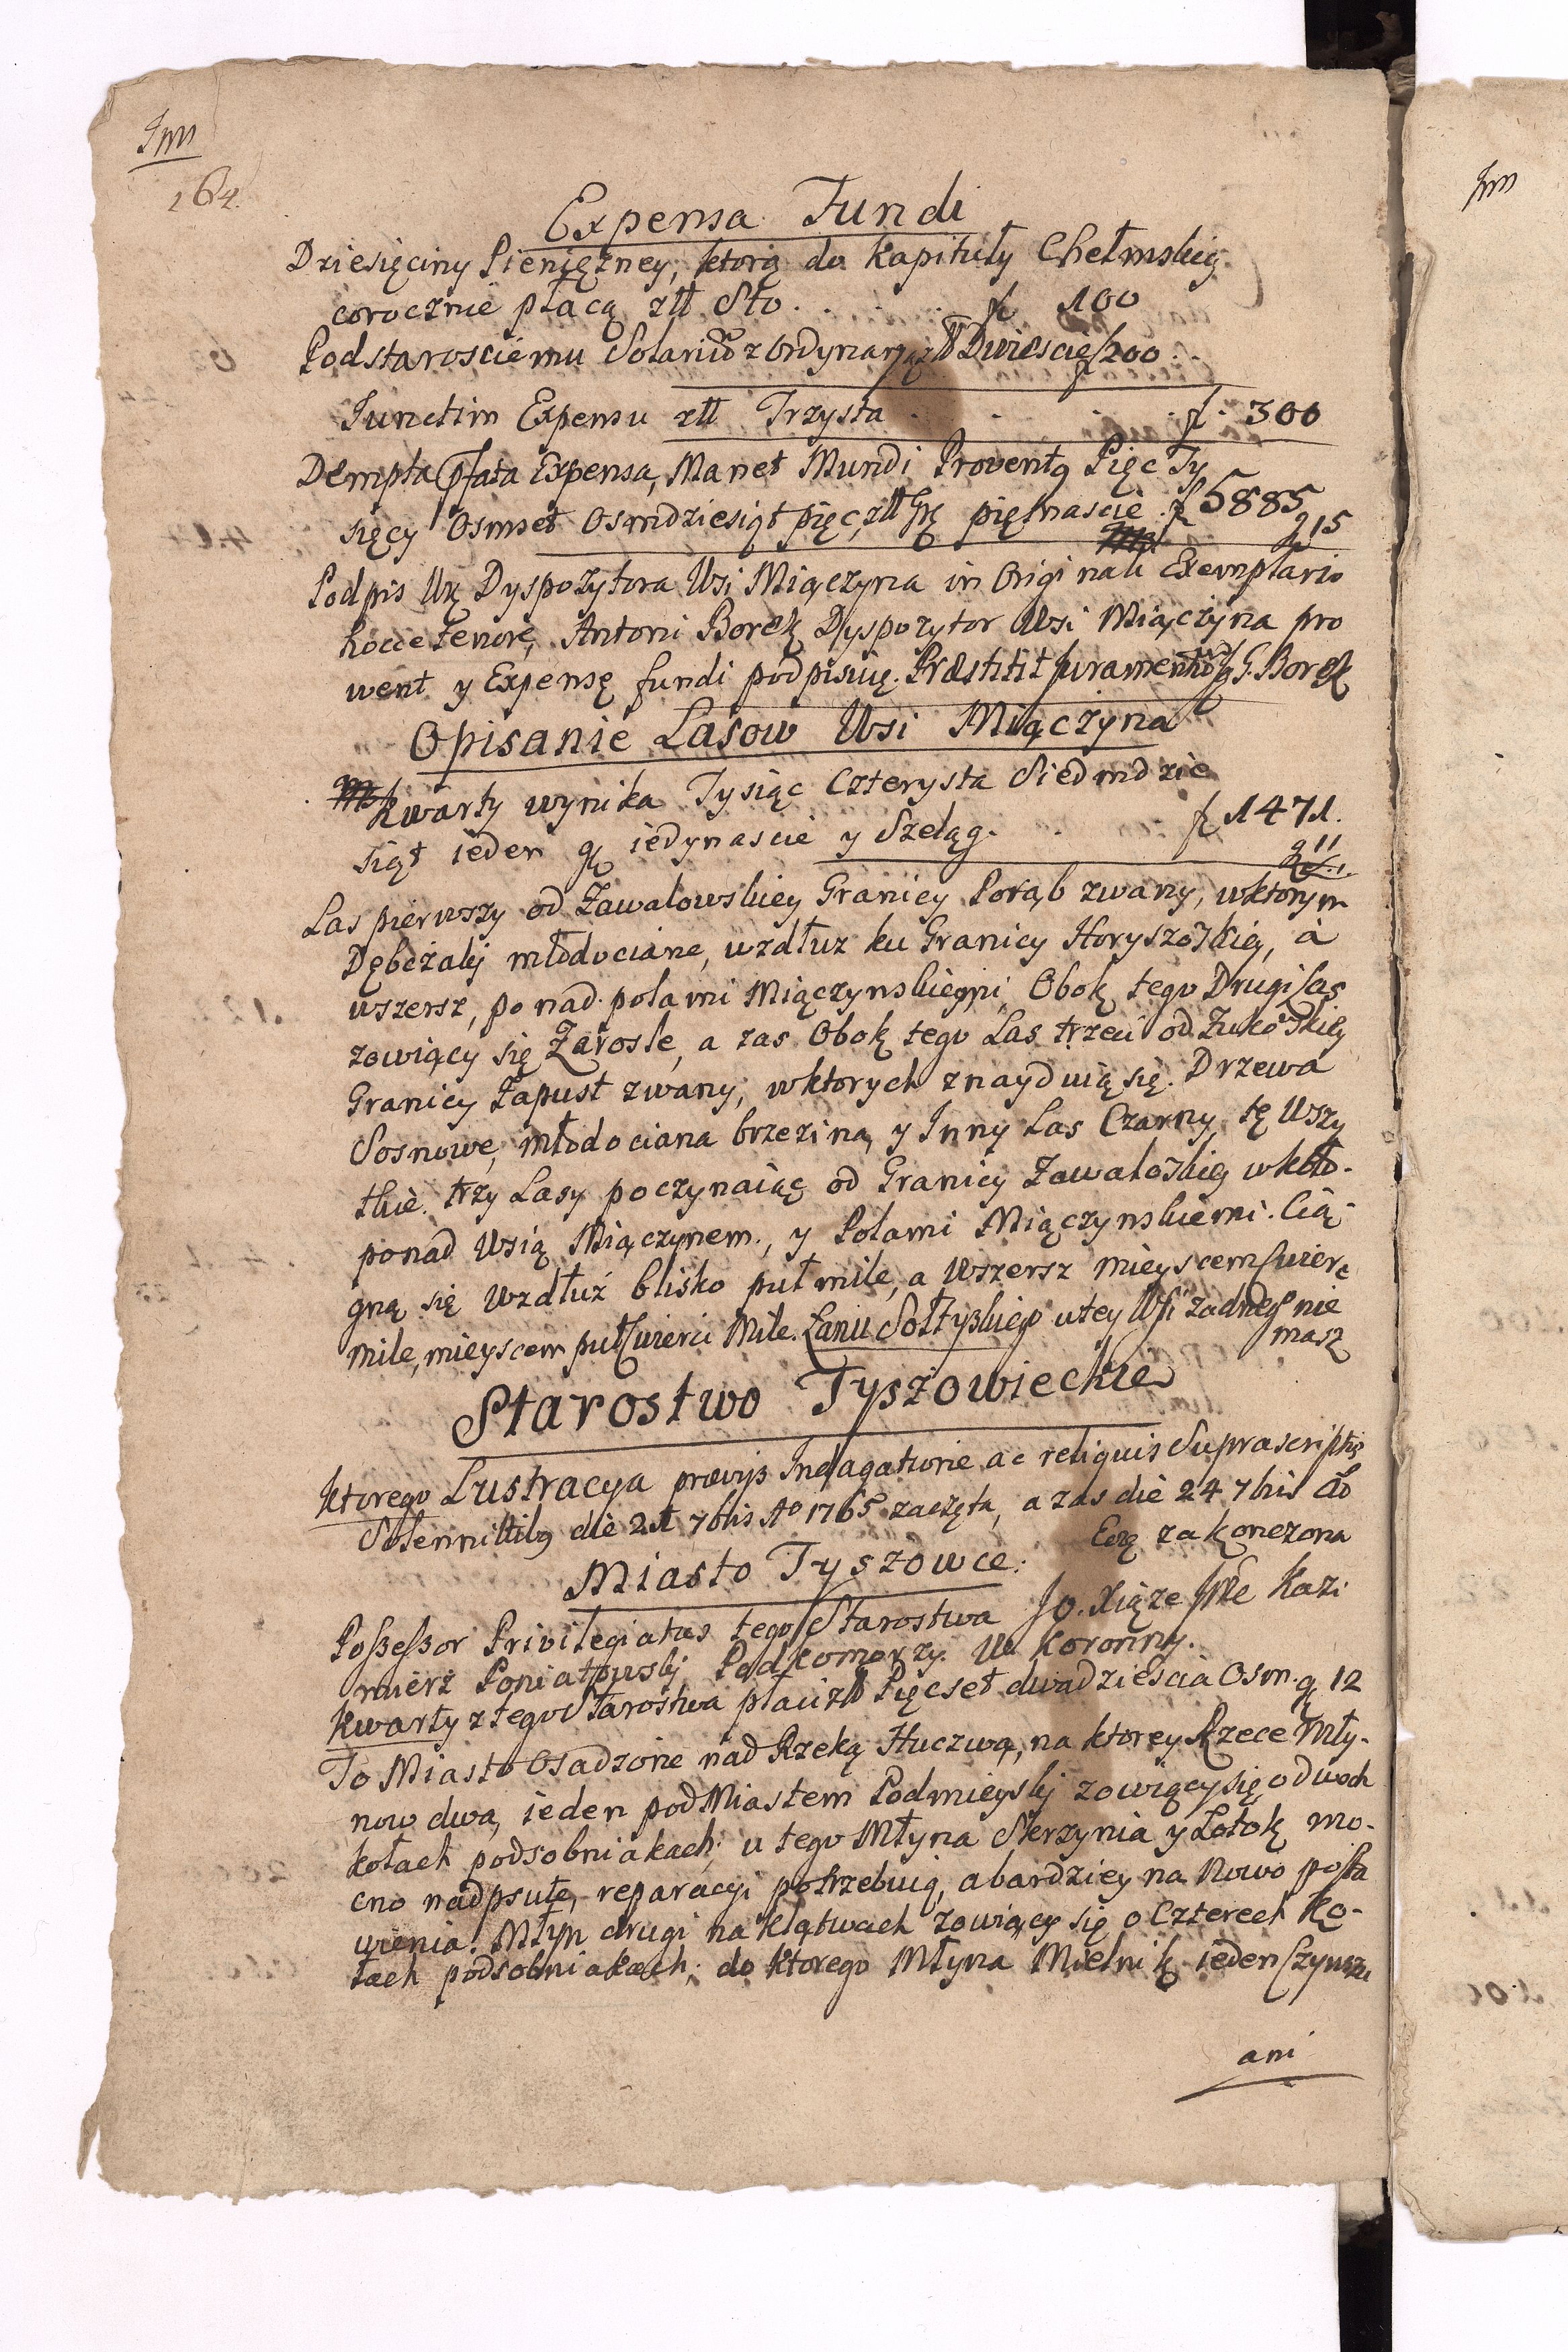 Jm
164.
Expensa Fundi
Dziesięciny Pieniężney, ktorą do Kapituły Chełmskiey
corocznie płacą złł Sto . . . . f 100
Podstarosciemu Solariu z Ordynaryą złł Dwiescie f 200 .
Junctim Expensu złł Trzysta . . . . f. 300
Dempta pfata Expensa, Manet Mundi Provent9 Pięc Ty
sięcy Osmset Osmdziesiąt pięc, złł Gr piętnascie f 5885
g 15
Podpis Ur Dyspozytora Wsi Miączyna in Originali Exemplario
hocce tenore, Antoni Borek Dyspozytor Wsi Miączyna pro
went y Expensę fundi podpisuię. Præstitit juramentu G. Borek
Opisanie Lasow Wsi Miączyna
Kwarty wynika Tysiąc Czterysta Siedmdzie
siąt ieden g iedynascie y Szeląg. . f 1471.
g 11
Las pierwszy od Zawalowskiey Granicy Porąb zwany, wktorym
Dębczaki młodociane, wzdłuz ku Granicy Horyszoskiey, a
wszersz, ponad polami Miączynskiemi, Obok tego Drugi Las
zowiący się Zarosle, a zas Obok tego Las trzeci od Zukoskiey
Granicy Zapust zwany, wktorych znayduią się Drzewa
Sosnowe, młodociana brzezina, y Inny Las Czarny, tę wszy
tkie trzy Lasy poczynaiąc od Granicy Zawaloskiey wkoło.
ponad Wsią Miączynem, y Polami Miączynskiemi. Cią
gną się Wzdłuż blisko puł mile, a Wszersz mieyscem cwierc
mile, mieyscem puł cwierci Mile. Łanu Sołtyskiego utey Wsi zadnego nie
masz
Starostwo Tyszowieckie
ktorego Lustracya prævijs Indagatione ac reliquis Suprascriptis
Solennitib9 die 21 7bris Ao 1765 zaczęta, a zas die 24 7bris
zakonczona
Miasto Tyszowce.
Possessor Privilegiatus tego Starostwa Jo. Xiąze Kazi
mierz Poniatowski Podkomorzy W Koronny.
Kwarty z tego Starostwa płaci złł Pięcset dwadziescia Osm g 12
To Miasto Osadzone nad Rzeką Huczwą, na ktorey Rzece Mły-
now dwa, ieden pod Miastem Podmieyski zowiący się o dwoch
kołach podsobniakach, u tego Młyna Skrzynia y Lotok mo-
cno nadpsute, reparacyi potrzebuią, abardziey na Nowo posta
wienia. Młyn drugi na Klątwach zowiący się o Czterech Ko-
łach podsobniakach, do ktorego Młyna Mielnik ieden Czynszu
ani
Jm